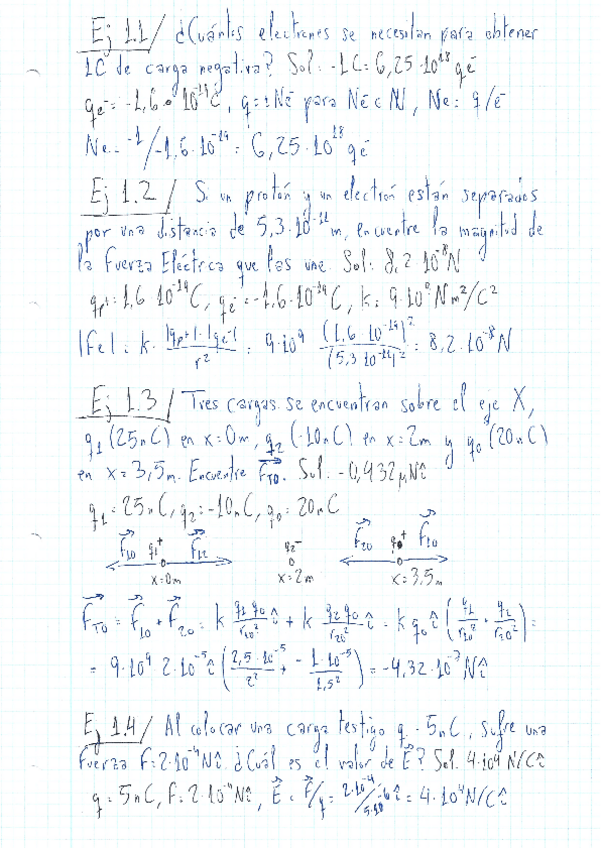 Ej 1.1/ ¿Cuántos electrones se necesitan para obtener
1C de carga negativa? Sol: -1C = 6,25·10^18 qe⁻
qe⁻ = -1,6·10^-19 C, q = Ne para Ne ∈ N, Ne = q/e
Ne = -1/-1,6·10^-19 = 6,25·10^18 qe⁻
Ej 1.2/ Si un protón y un electrón están separados
por una distancia de 5,3·10^-11 m, encuentre la magnitud de
la Fuerza Eléctrica que las une. Sol: 8,2·10^-8 N
qp⁺ = 1,6·10^-19 C, qe⁻ = -1,6·10^-19 C, k = 9·10^9 N m²/C²
|Fe| = k · |qp⁺|·|qe⁻| / r² = 9·10^9 (1,6·10^-19)² / (5,3·10^-11)² = 8,2·10^-8 N
Ej 1.3/ Tres cargas se encuentran sobre el eje X,
q1 (25nC) en x=0m, q2 (-10nC) en x=2m y q0 (20nC)
en x=3,5m. Encuentre F_T0. Sol: -0,432 μN î
q1 = 25nC, q2 = -10nC, q0 = 20nC
F10 q1⁺ F12 q2⁻ F20 q0⁺ F10
x=0m x=2m x=3,5m
F_T0 = F10 + F20 = k q1 q0 / r10² î + k q2 q0 / r20² î = k q0 î (q1 / r10² + q2 / r20²) =
= 9·10^9 2·10^-5 î (2,5·10^-5 / 2² + -1·10^-5 / 1,5²) = -4,32·10^-7 N î
Ej 1.4/ Al colocar una carga testigo q = 5nC, sufre una
fuerza F=2·10^-4 N î. ¿Cuál es el valor de E? Sol. 4·10^4 N/C î
q = 5nC, F = 2·10^-4 N î, E = F/q = 2·10^-4 / 5·10 î = 4·10^4 N/C î